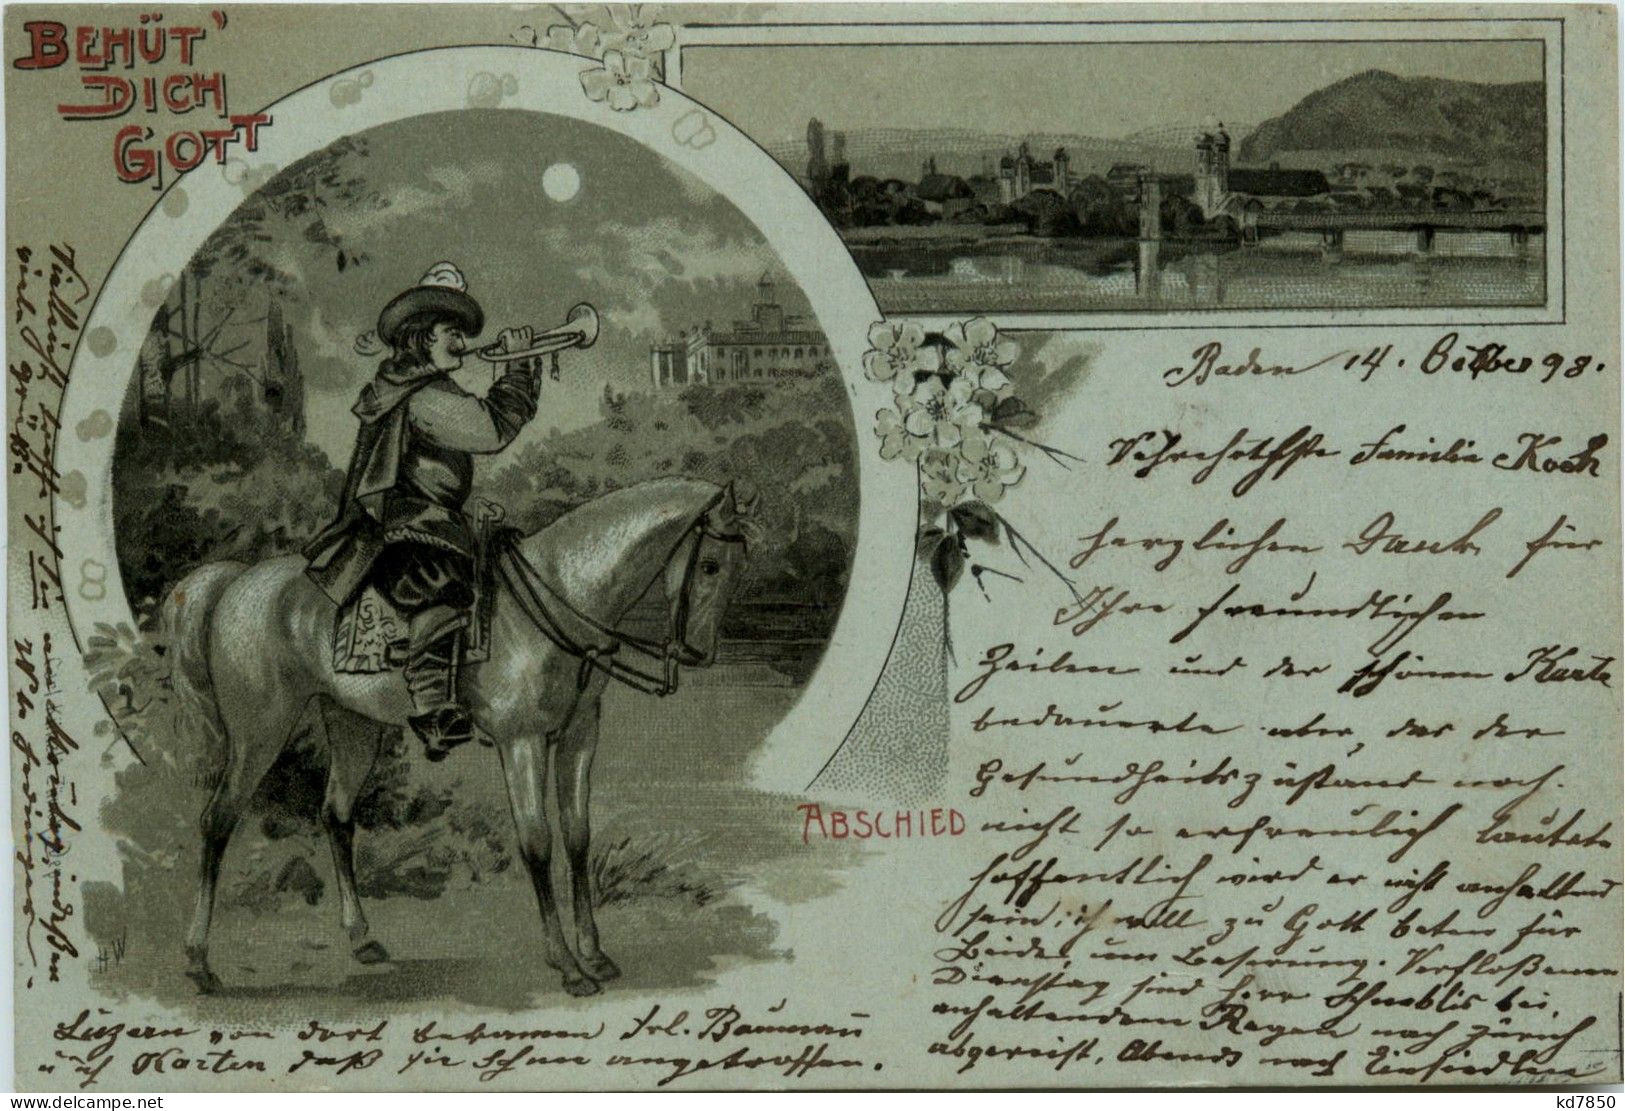 BEHÜT'
DICH
GOTT
Baden 14. October 98.
Verehrteste Familie Koch
herzlichen Dank für
Ihre freundlichen
Zeilen und der schönen Karte
bedauerte aber, das der
Gesundheitszustand noch
nicht so erfreulich lautete
hoffentlich wird er nicht anhaltend
sein; ich will zu Gott beten für
Beide, um Besserung. Verfloßenen
Dienstag sind Herr Schneblis bei
anhaltendem Regen nach Zürich
abgereist, Abends nach Einsiedlen
ABSCHIED
HW
Luzern von dort bekamen Frl. Baumann
u ich Karten daß sie schnee angetroffen.
Vielleicht treffe ich Sie am Montag, indeßen
viele grüße